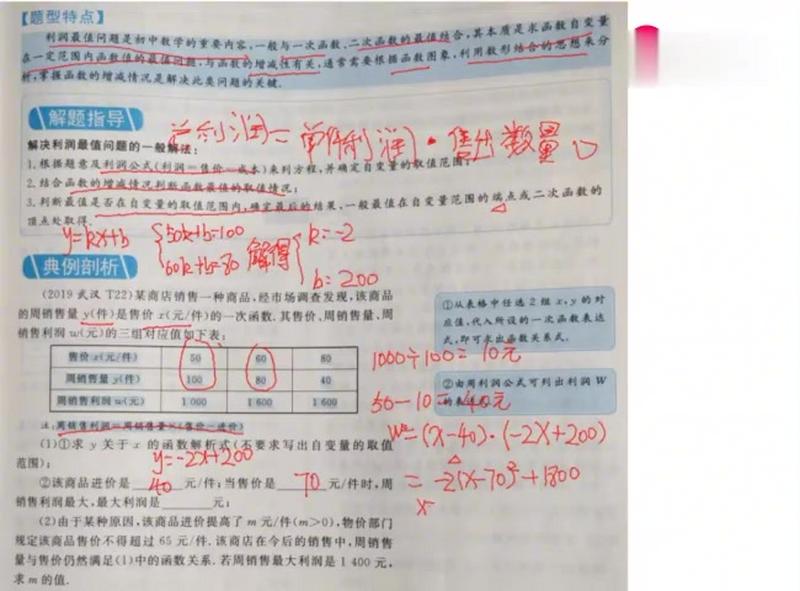 【题型特点】
利润最值问题是初中数学的重要内容,一般与一次函数、二次函数的最值结合,其本质是求函数自变量
在一定范围内函数值的最值问题,与函数的增减性有关,通常需要根据函数图象,利用数形结合的思想来分
析,掌握函数的增减情况是解决此类问题的关键.
解题指导
总利润=单件利润·售出数量
解决利润最值问题的一般解法:
1.根据题意及利润公式(利润=售价-成本)来列方程,并确定自变量的取值范围;
2.结合函数的增减情况判断函数最值的取值情况;
3.判断最值是否在自变量的取值范围内,确定最后的结果.一般最值在自变量范围的端点或二次函数的
顶点处取得.
y=kx+b
50k+b=100
60k+b=80
解得
k=-2
b=200
典例剖析
(2019 武汉 T22)某商店销售一种商品,经市场调查发现,该商品
的周销售量 y(件)是售价 x(元/件)的一次函数.其售价、周销售量、周
销售利润 w(元)的三组对应值如下表:
售价 x(元/件) 50 60 80
周销售量 y(件) 100 80 40
周销售利润 w(元) 1 000 1 600 1 600
注:周销售利润=周销售量×(售价-进价)
(1)①求 y 关于 x 的函数解析式(不要求写出自变量的取值
范围);
y=-2x+200
②该商品进价是 40 元/件;当售价是 70 元/件时,周
销售利润最大,最大利润是 元;
(2)由于某种原因,该商品进价提高了 m 元/件(m>0),物价部门
规定该商品售价不得超过 65 元/件.该商店在今后的销售中,周销售
量与售价仍然满足(1)中的函数关系.若周销售最大利润是 1 400 元,
求 m 的值.
①从表格中任选 2 组 x,y 的对
应值,代入所设的一次函数表达
式,即可求出函数关系式.
1000÷100=10元
②由周利润公式可列出利润 W
50-10=40元
W=(x-40)·(-2x+200)
=-2(x-70)²+1800
x